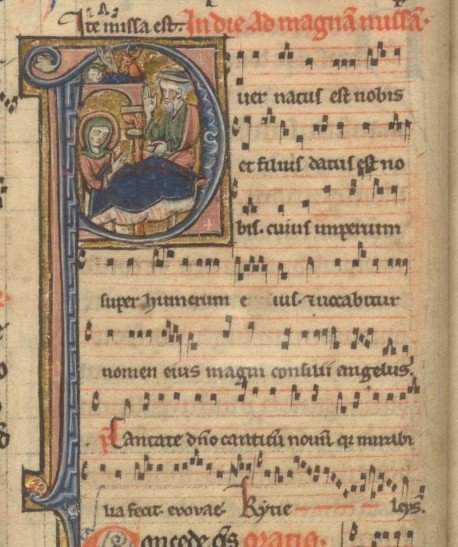 Ite missa est. In die Ad magnã missã.
Puer natus est nobis
et filius datus est no
bis. cuius imperium
super humerum e ius. ⁊ uocabitur
nomen eius magni consilii angelus.
ps Cantate dño canticũ nouũ qr mirabi
lia fecit. evovae. Kyrie leys.
Concede q̄s oratio.